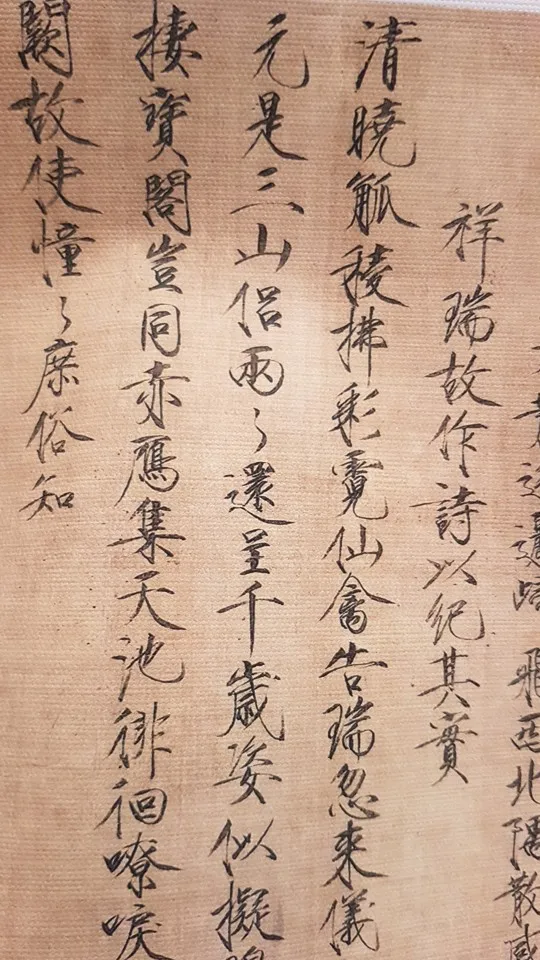 迤邐歸飛西北隅散感
祥瑞故作詩以紀其實
清曉觚稜拂彩霓仙禽告瑞忽來儀
元是三山侶兩〻還呈千歲姿似擬
棲寶閣豈同赤鴈集天池徘徊嘹唳
闕故使憧〻庶俗知